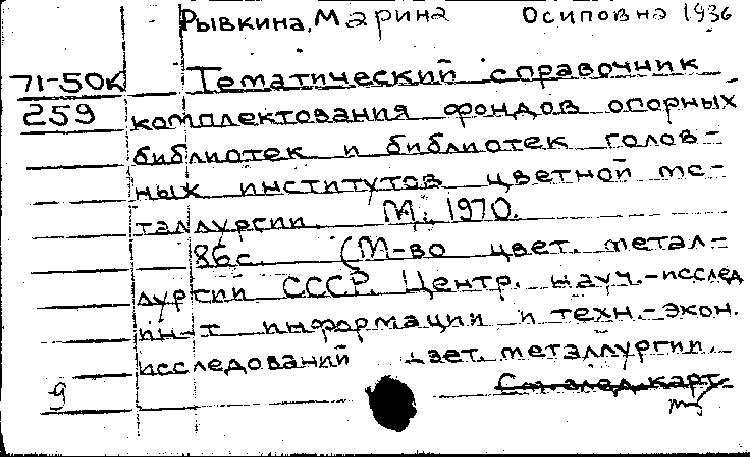 Рывкина, Марина Осиповна 1936
71-50к Тематический справочник
259 комплектования фондов опорных
библиотек и библиотек голов-
ных институтов цветной ме-
таллургии. М., 1970.
86с. (М-во цвет. метал-
лургии СССР. Центр. науч.-исслед
ин-т информации и техн.-экон.
исследований цвет. металлургии.
См. след. карт.
9